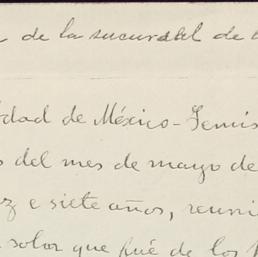 de la sucursal de
dad de México-Temis
s del mes de mayo de
z e siete años, reuni
solar que fué de los